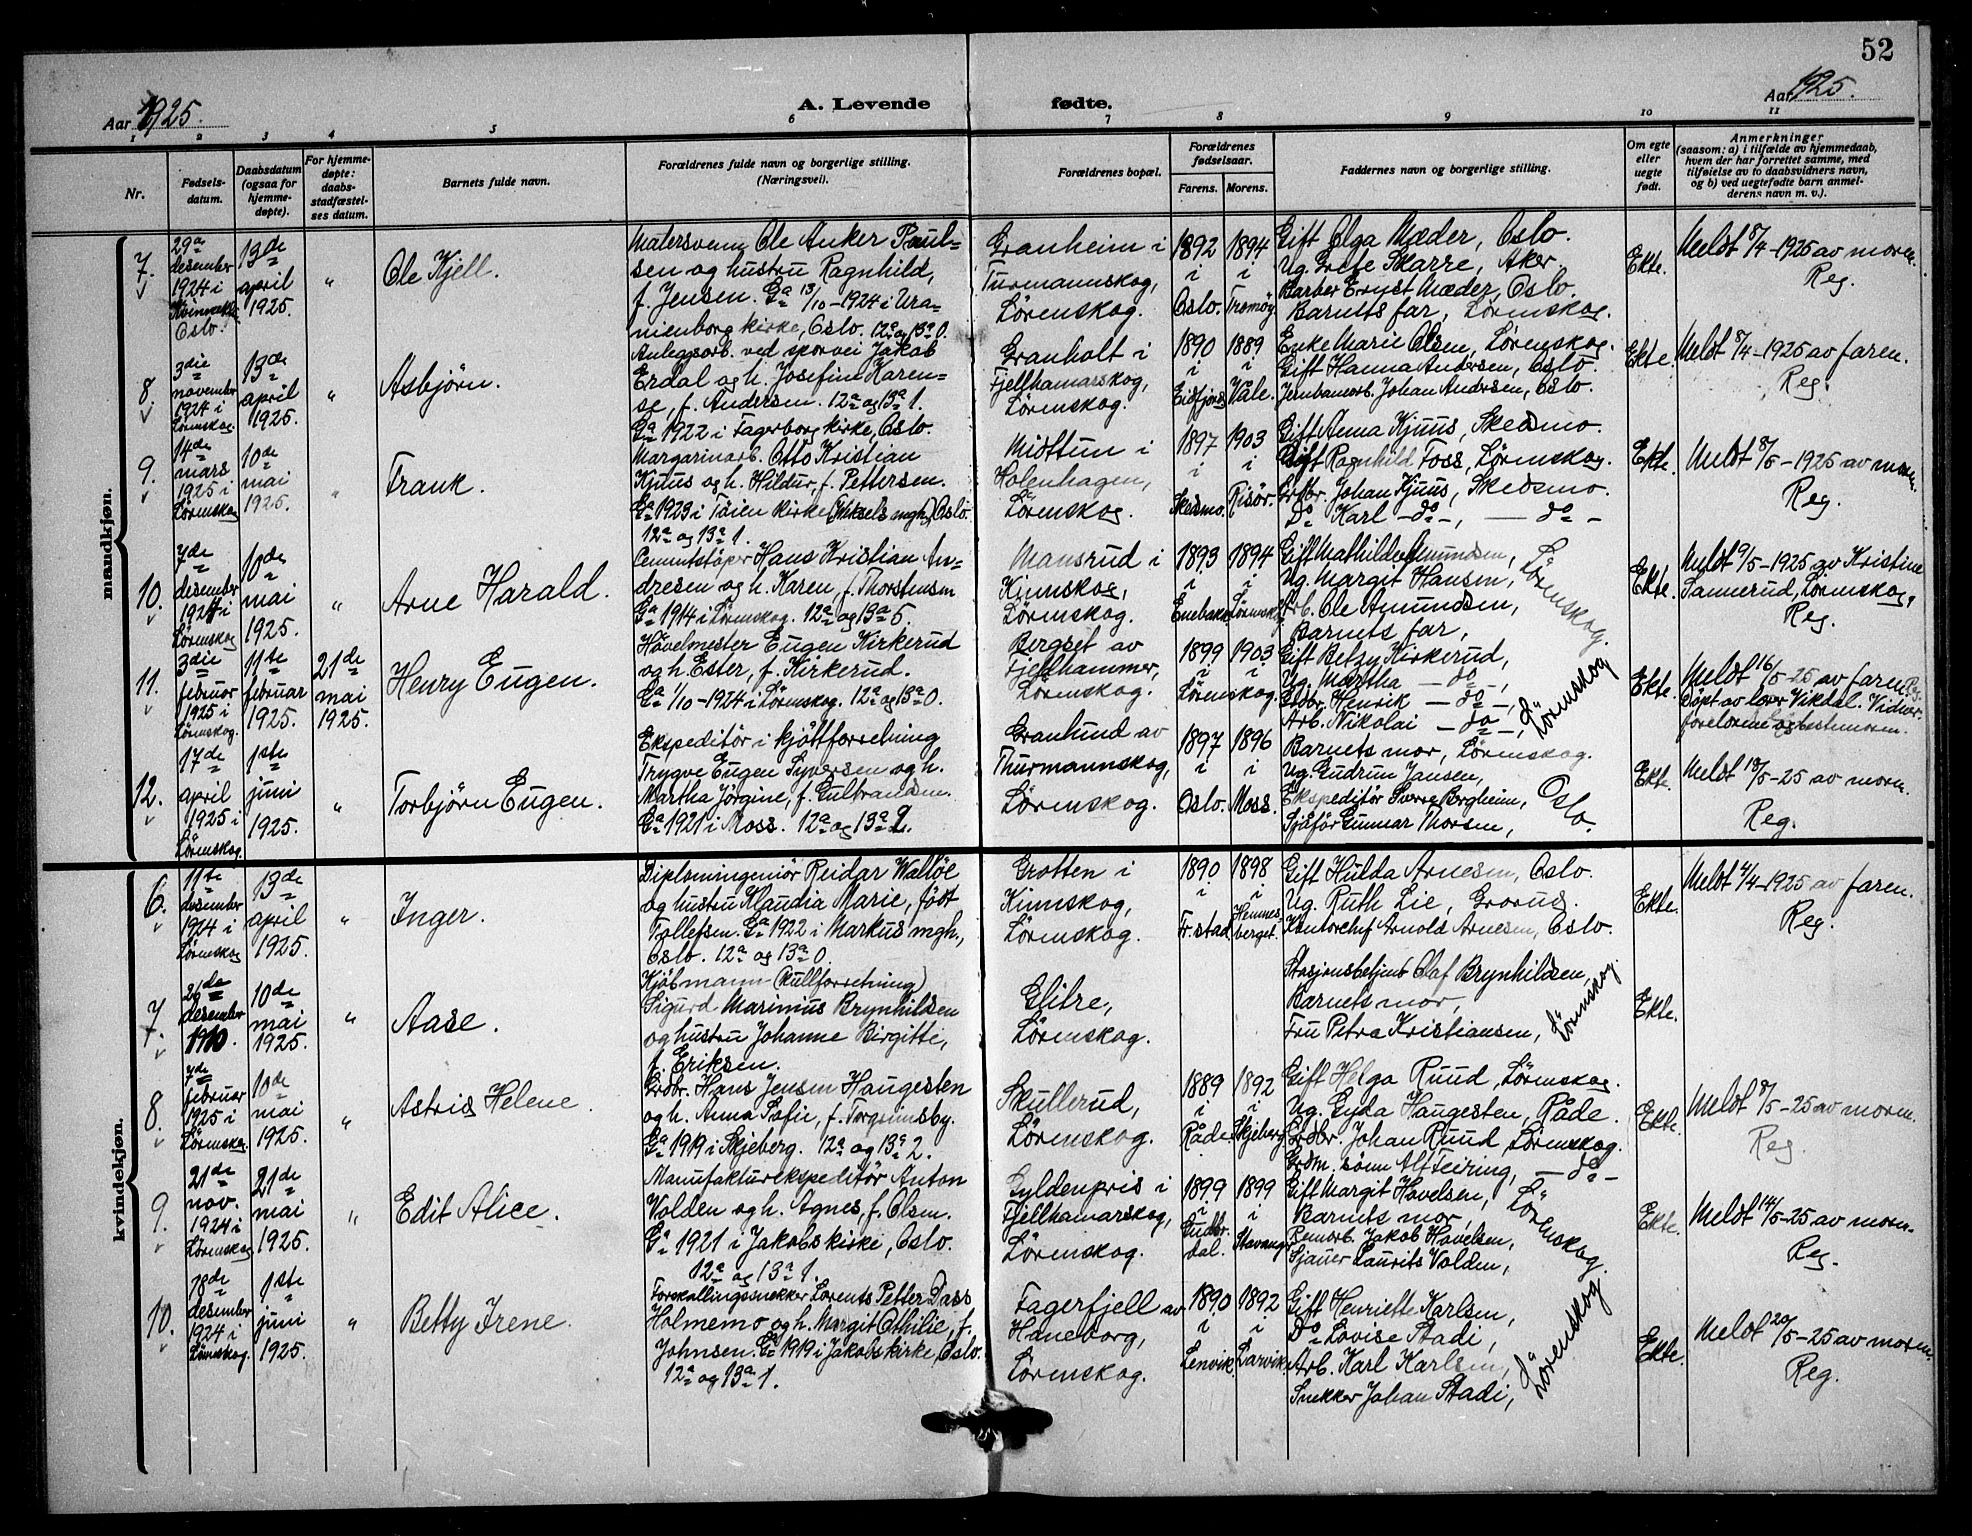 52
Aar 1925.
A. Levende fødte.
Aar 1925.
1 2 3 4 5 6 7 8 9 10 11
Nr.
Fødsels-
datum.
Daabsdatum
(ogsaa for
hjemme-
døpte).
For hjemme-
døpte:
daabs-
stadfæstel-
ses datum.
Barnets fulde navn.
Forældrenes fulde navn og borgerlige stilling.
(Næringsvei).
Forældrenes bopæl.
Forældrenes
fødselsaar.
Farens. Morens.
Faddernes navn og borgerlige stilling.
Om egte
eller
uegte
født.
Anmerkninger
(saasom: a) i tilfælde av hjemmedaab,
hvem der har forrettet samme, med
tilføielse av to daabsvidners navn,
og b) ved uegtefødte barn anmel-
derens navn m. v.).
mandkjøn.
7.
29de
desember
1924 i
Oslo.
13de
april
1925.
"
Ole Kjell.
Malersvenn Ole Anker Paul-
sen og hustru Ragnhild,
f. Jensen. Ga 13/10-1924 i Ura-
nienborg kirke, Oslo. 12a og 13a 0.
Granheim i
Turmannskog,
Lørenskog.
1892
i
Oslo.
1894
i
Tromøy
Gift Olga Mæder, Oslo.
Ug. Grete Skarre, Aker.
Barber Ernst Mæder, Oslo.
Barnets far, Lørenskog.
Ekte.
Meldt 8/4-1925 av moren.
Reg.
8.
3die
november
1924 i
Lørenskog.
13de
april
1925.
"
Asbjørn.
Anleggsarb. ved sporvei Jakob
Erdal og h. Josefine Karen-
se, f. Andersen. 12a og 13a 1.
Ga 1922 i Fagerborg kirke, Oslo.
Granholt i
Fjellhamarskog,
Lørenskog.
1890
i
Eidfjord
1889
i
Våle.
Enke Marie Olsen, Lørenskog.
Gift Hanna Andersen, Oslo.
Jernbanearb. Johan Andersen, Oslo.
Ekte.
Meldt 8/4-1925 av faren.
Reg.
9.
14de
mars
1925 i
Lørenskog
10de
mai
1925.
"
Frank.
Margarinarb. Otto Kristian
Kjuus og h. Hildur, f. Pettersen.
Ga 1923 i Tøien kirke (Mikaels mgh.) Oslo.
12a og 13a 1.
Midttun i
Holenhagen,
Lørenskog.
1897
i
Skedsmo.
1903
i
Risør.
Gift Anna Kjuus, Skedsmo.
Gift Ragnhild Foss, Lørenskog.
Grdbr. Johan Kjuus, Skedsmo.
Do Karl -do-, -do-
Ekte.
Meldt 8/5-1925 av moren.
Reg.
10.
7de
desember
1924 i
Lørenskog
10de
mai
1925.
"
Arne Harald.
Cementstøper Hans Kristian An-
dresen og h. Karen, f. Thorstensen
Ga 1914 i Lørenskog. 12a og 13a 5.
Mansrud i
Kinnskog,
Lørenskog.
1893
i
Enebakk
1894
i
Lørenskog
Gift Mathilde Amundsen,
Ug. Margit Hansen,
Arb. Ole Amundsen,
Barnets far,
Lørenskog.
Ekte.
Meldt 9/5-1925 av Kristine
Sannerud, Lørenskog.
Reg.
11.
3die
februar
1925 i
Lørenskog.
11te
februar
1925.
21de
mai
1925.
Henry Eugen.
Høvelmester Eugen Kirkerud
og h. Ester, f. Kirkerud.
Ga 1/10-1924 i Lørenskog. 12a og 13a 0.
Bergset av
Fjellhammer,
Lørenskog.
1899
i
Lørenskog
1903
i
Lørenskog.
Gift Betzy Kirkerud,
Ug. Martha -do-,
Grdbr. Henrik -do-,
Arb. Nikolai -do-,
Lørenskog
Ekte.
Meldt 16/5-25 av faren. Reg.
Døpt av lærer Vikdal. Vidner:
foreldrene og bestemoren.
12.
17de
april
1925 i
Lørenskog.
1ste
juni
1925.
"
Torbjørn Eugen.
Ekspeditør i kjøttforretning
Trygve Eugen Syversen og h.
Martha Jørgine, f. Gulbrandsen.
Ga 1921 i Moss. 12a og 13a 2.
Granlund av
Thurmannskog,
Lørenskog.
1897
i
Oslo.
1896
i
Moss.
Barnets mor, Lørenskog.
Ug. Gudrun Jansen,
Ekspeditør Sverre Bergheim,
Sjåfør Gunnar Thorsen,
Oslo.
Ekte.
Meldt 18/5-25 av moren.
Reg.
kvindekjøn.
6.
11te
desember
1924 i
Lørenskog
13de
april
1925.
"
Inger.
Diplomingeniør Reidar Walløe
og hustru Klaudia Marie, født
Tollefsen. Ga 1922 i Markus mgh.,
Oslo. 12a og 13a 0.
Grotten i
Kinnskog,
Lørenskog.
1890
i
Fr.stad
1898
i
Hemnes-
berget.
Gift Hulda Arnesen, Oslo.
Ug. Ruth Lie, Grorud.
Kontorchef Arnold Arnesen, Oslo.
Ekte.
Meldt 4/4-1925 av faren.
Reg.
7.
26de
desember
1910.
10de
mai
1925.
"
Aase.
Kjøbmann (kullforretning)
Sigurd Marinius Brynhildsen
og hustru Johanne Birgitte,
f. Eriksen.
Glitre,
Lørenskog.
Stasjonsbetjent Olaf Brynhildsen,
Barnets mor,
Fru Petra Kristiansen,
Lørenskog.
Ekte.
8.
7de
februar
1925 i
Lørenskog.
10de
mai
1925.
"
Astrid Helene.
Grdbr. Hans Jensen Haugesten
og h. Anna Sofie, f. Torgunnsby.
Ga 1919 i Skjeberg. 12a og 13a 2.
Skullerud,
Lørenskog.
1889
i
Råde
1892
i
Skjeberg
Gift Helga Ruud, Lørenskog.
Ug. Gyda Haugesten, Råde.
Grdbr. Johan Ruud, Lørenskog.
Grdm. sønn Alf Feiring, -do-
Ekte.
Meldt 8/5-25 av moren.
Reg.
9.
21de
nov.
1924 i
Lørenskog
21de
mai
1925.
"
Edit Alice.
Manufakturekspeditør Anton
Volden og h. Agnes, f. Olsen.
Ga 1921 i Jakobs kirke, Oslo.
12a og 13a 1.
Gyldenpris i
Fjellhamarskog,
Lørenskog.
1899
i
Gudbr.
dal.
1899
i
Stavanger
Gift Margit Hovelsen,
Barnets mor,
Renarb. Jakob Hovelsen,
Sjauer Laurits Volden,
Lørenskog.
Ekte.
Meldt 14/5-25 av moren.
Reg.
10.
18de
desember
1924 i
Lørenskog.
1ste
juni
1925.
"
Betty Irene.
Forskallingssnekker Lorents Petter Dass
Holmemo og h. Margit Othilie, f.
Johnsen. Ga 1919 i Jakobs kirke, Oslo.
12a og 13a 1.
Fagerfjell av
Haneborg,
Lørenskog.
1890
i
Lenvik.
1892
i
Larvik.
Gift Henriette Karlsen,
Do Lovise Stadi,
Arb. Karl Karlsen,
Snekker Johan Stadi,
Lørenskog
Ekte.
Meldt 20/5-25 av moren.
Reg.